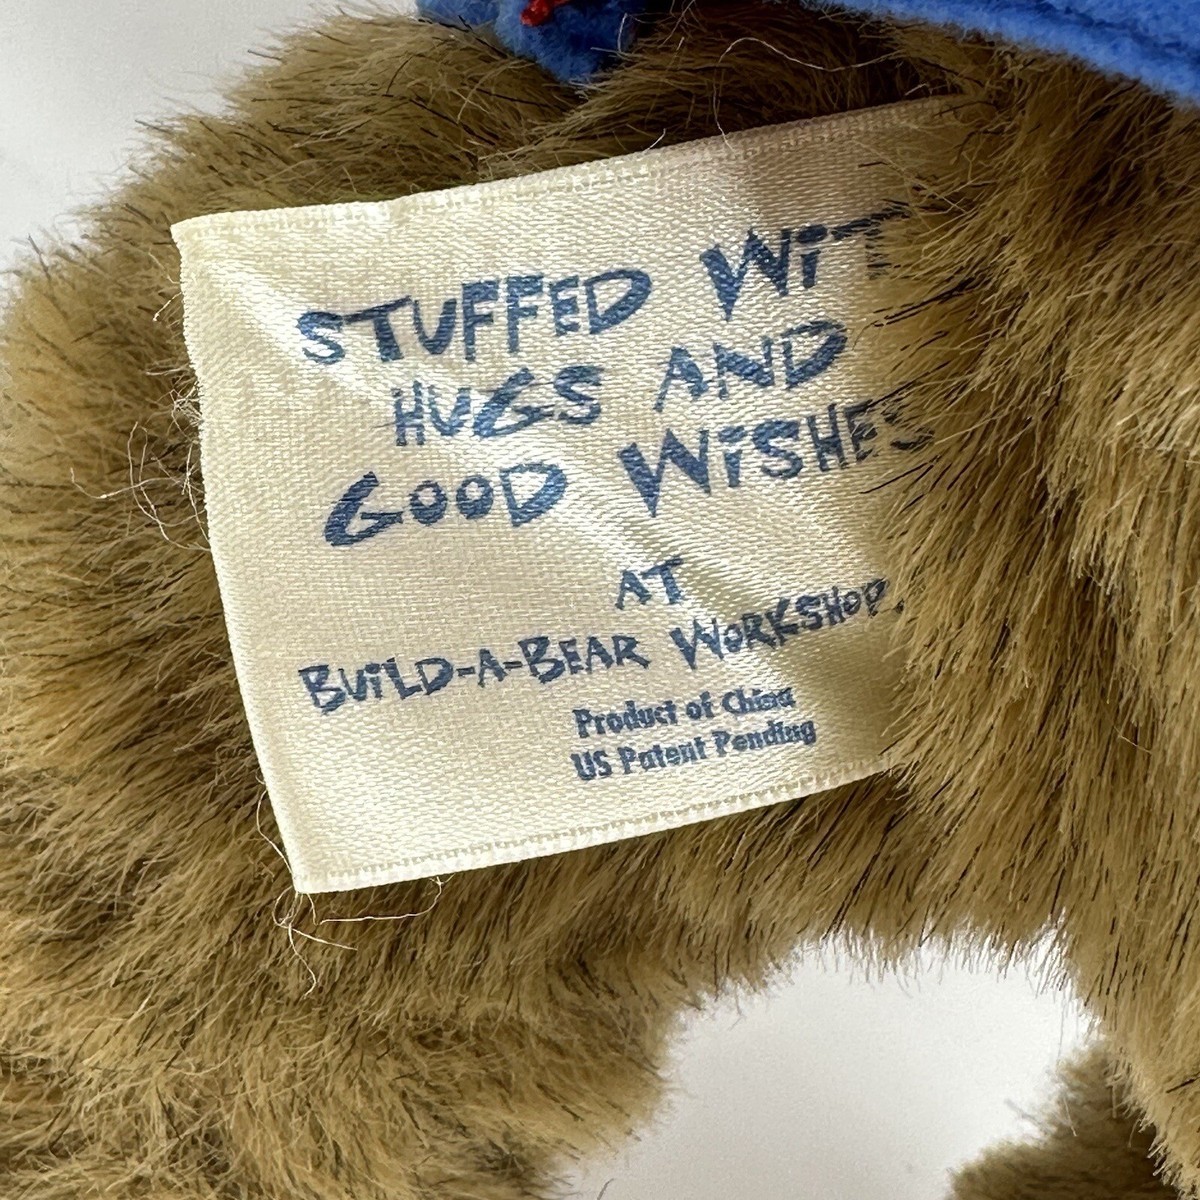 STUFFED WIT
HUGS AND
GOOD WISHES
AT
BUILD-A-BEAR WORKSHOP.
Product of China
US Patent Pending